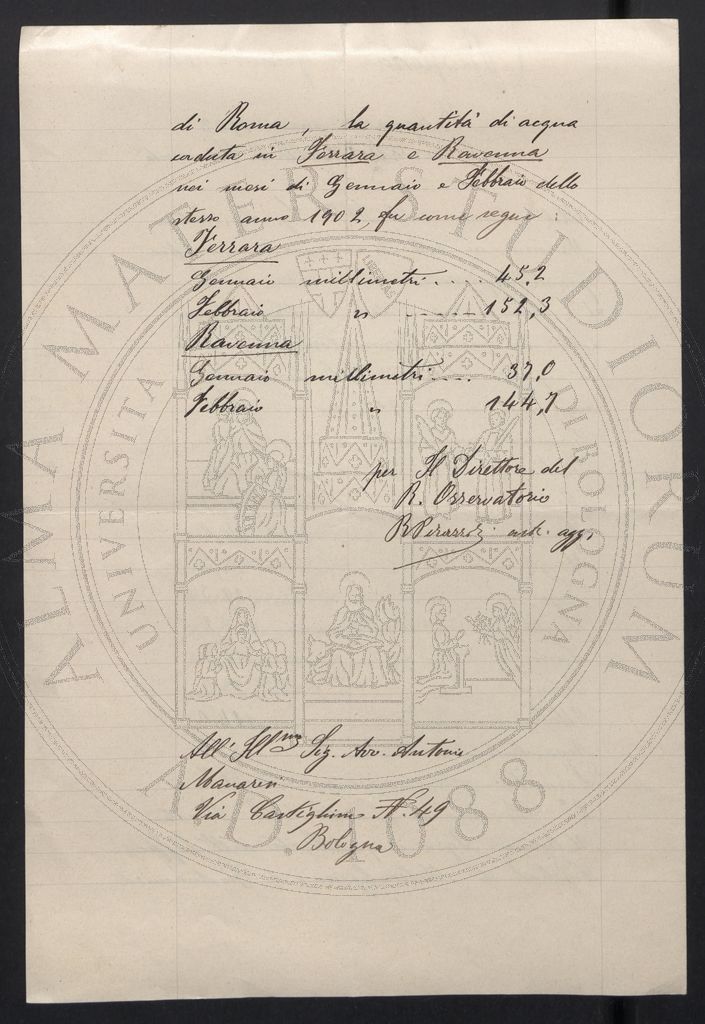 di Roma, la quantità di acqua
caduta in Ferrara e Ravenna
nei mesi di Gennaio e Febbraio dello
stesso anno 1902, fu come segue:
Ferrara
Gennaio millimetri.... 45,2
Febbraio " ------ 152,3
Ravenna
Gennaio millimetri.... 37,0
Febbraio " 144,7
per Il Direttore del
R. Osservatorio
R Pirazzoli ast. agg.
All' Ill.mo Sig. Avv. Antonio
Manaresi
Via Castiglione N. 49
Bologna
ALMA MATER STUDIORUM
UNIVERSITA DI BOLOGNA
A.D. 1088